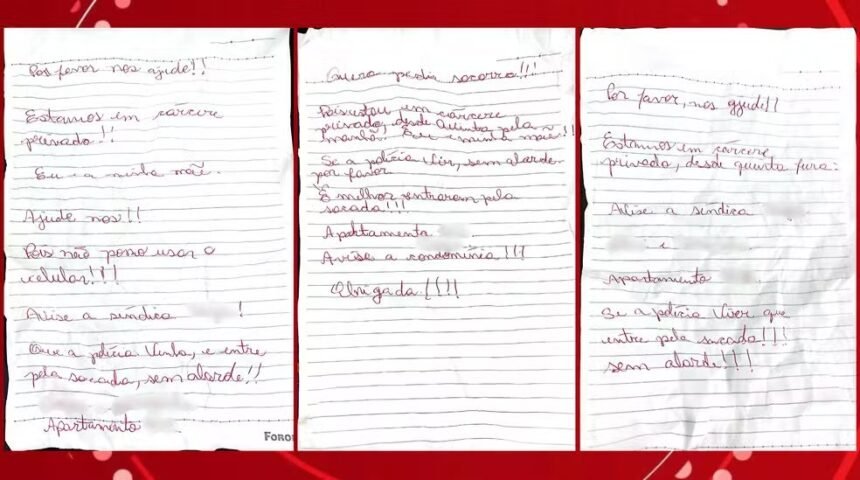 Por favor nos ajude!!
Estamos em cárcere
privado!!
Eu e a minha mãe.
Ajude nos!!
Pois não posso usar o
celular!!!
Avise a síndica !
Que a polícia Venha, e entre
pela sacada, sem alarde!!
Apartamento
FORO
Quero pedir socorro!!!
Pois estou em cárcere
privado, desde Quinta pela
manhã. Eu e minha mãe!!
Se a polícia Vir, sem alarde
por favor
É melhor entrarem pela
sacada!!!
Apartamento
Avise a condomínia!!!
Obrigada!!!!
Por favor, nos ajude!!
Estamos em cárcere
privado, desde quinta feira:
Avise a síndica
e
Apartamento
Se a polícia Vier que
entre pela sacada!!!
sem alarde!!!